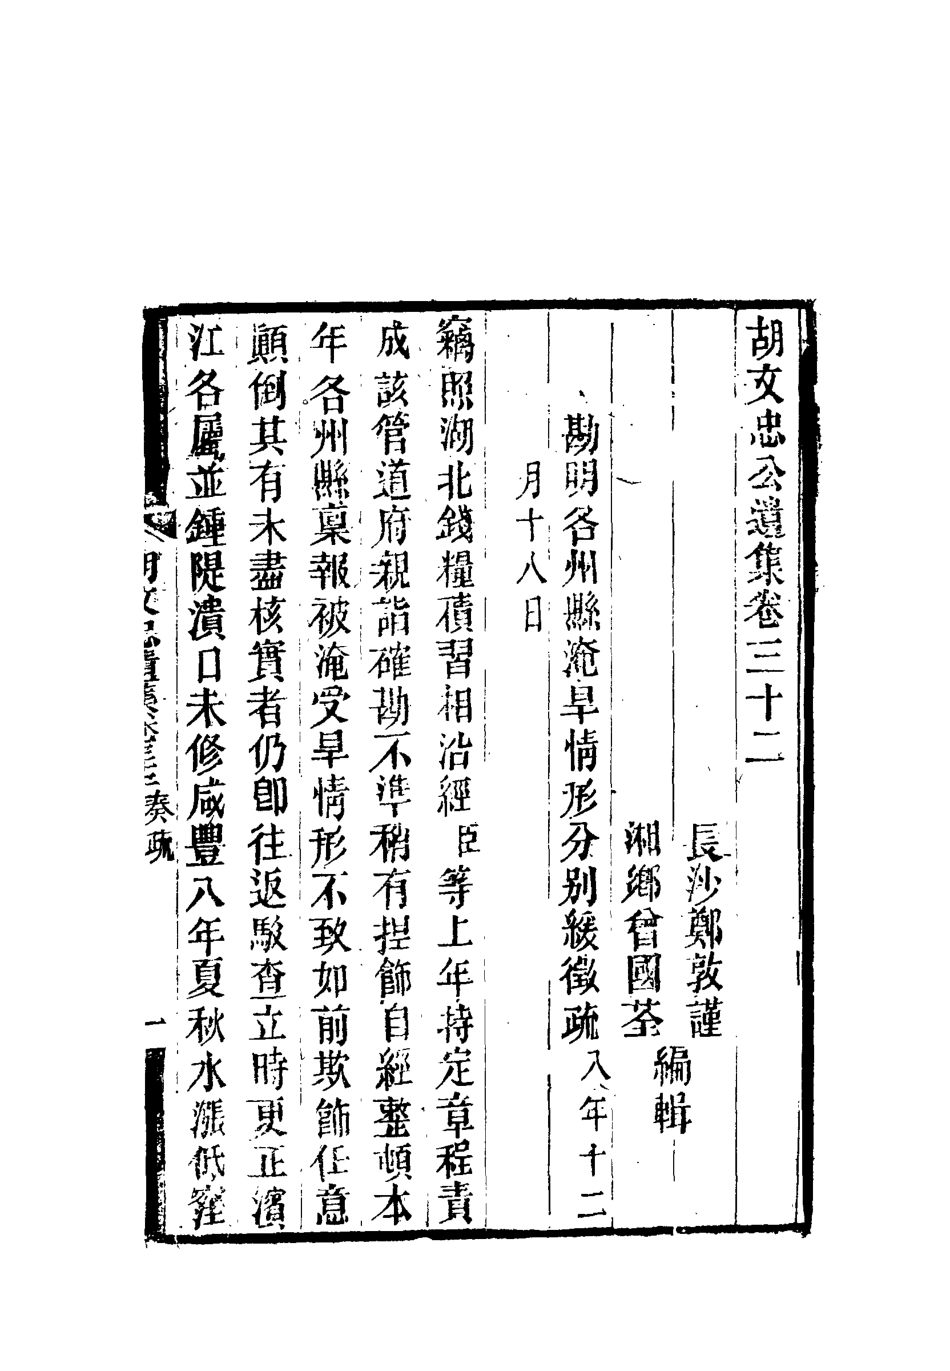 胡文忠公遺集卷三十二
長沙鄭敦謹
湘鄉曾國荃
編輯
勘明各州縣淹旱情形分別緩徵疏八年十二
月十八日
竊照湖北錢糧積習相沿經臣等上年持定章程責
成該管道府親詣確勘不準稍有捏飾自經整頓本
年各州縣稟報被淹受旱情形不致如前欺飾任意
顛倒其有未盡核實者仍卽往返駁查立時更正濱
江各屬並鍾隄潰口未修咸豐八年夏秋水漲低窪
胡文忠遺集卷三十二奏疏
一